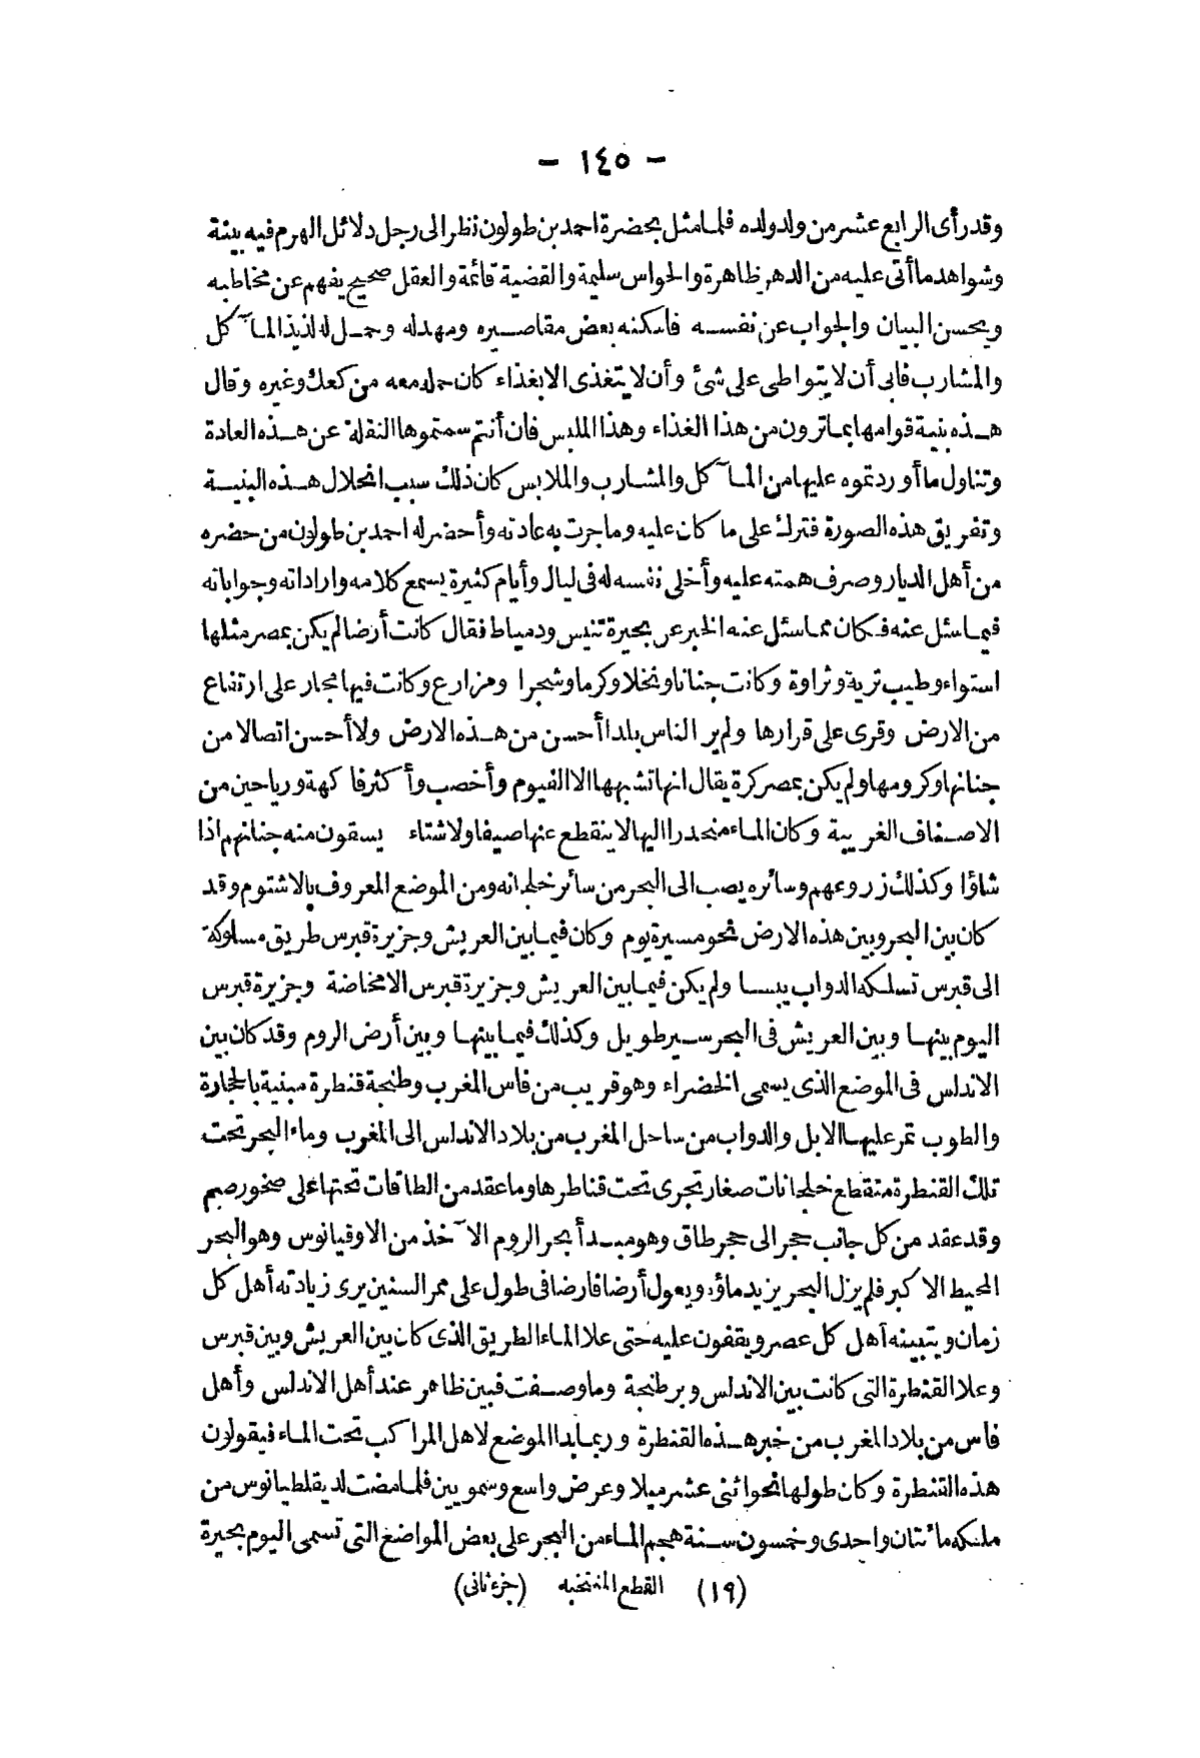 - ١٤٥ -
وقد رأى الرابع عشر من ولد ولده فلما مثل بحضرة احمد بن طولون نظر الى رجل دلائل الهرم فيه بينة
وشواهد ما أتى عليه من الدهر ظاهرة والحواس سليمة والقضية قائمة والعقل صحيح يفهم عن مخاطبه
ويحسن البيان والجواب عن نفسه فاسكنه بعض مقاصيره ومهد له وحمل له لذيذ المآكل
والمشارب فابى أن لا يتواطى على شئ وأن لا يتغذى الا بغذاء كان حمله معه من كعك وغيره وقال
هذه بنية قوامها بما ترون من هذا الغذاء وهذا الملبس فان أنتم سمتموها النقلة عن هذه العادة
وتناول ما أوردتموه عليها من المآكل والمشارب والملابس كان ذلك سبب انحلال هذه البنية
وتفريق هذه الصورة فترك على ما كان عليه وما جرت به عادته وأحضر له احمد بن طولون من حضره
من أهل الديار وصرف همته عليه وأخلى نفسه له فى ليال وأيام كثيرة يسمع كلامه واراداته وجواباته
فيما سئل عنه فكان مما سئل عنه الخبر عن بحيرة تنيس ودمياط فقال كانت أرضا لم يكن بمصر مثلها
استواء وطيب تربة وثراوة وكانت جنانا ونخلا وكرما وشجرا ومزارع وكانت فيها مجار على ارتفاع
من الارض وقرى على قرارها ولم ير الناس بلدا أحسن من هذه الارض ولا أحسن اتصالا من
جنانها وكرومها ولم يكن بمصر كرة يقال انها تشبهها الا الفيوم وأخصب وأكثر فاكهة ورياحين من
الاصناف الغريبة وكان الماء منحدرا اليها لا ينقطع عنها صيفا ولا شتاء يسقون منه جنانهم اذا
شاؤا وكذلك زروعهم وسائره يصب الى البحر من سائر خلجانه ومن الموضع المعروف بالاشتوم وقد
كان بين البحر وبين هذه الارض نحو مسيرة يوم وكان فيما بين العريش وجزيرة قبرس طريق مسلوكة
الى قبرس تسلكه الدواب يبسا ولم يكن فيما بين العريش وجزيرة قبرس الا مخاضة وجزيرة قبرس
اليوم بينها وبين العريش فى البحر سير طويل وكذلك فيما بينها وبين أرض الروم وقد كان بين
الاندلس فى الموضع الذى يسمى الخضراء وهو قريب من فاس المغرب وطنجة قنطرة مبنية بالحجارة
والطوب تمر عليها الابل والدواب من ساحل المغرب من بلاد الاندلس الى المغرب وماء البحر تحت
تلك القنطرة منقطع خلجانات صغار تجرى تحت قناطرها وما عقد من الطاقات تحتها على صخور صم
وقد عقد من كل جانب حجر الى حجر طاق وهو مبدأ بحر الروم الآخذ من الاوقيانوس وهو البحر
المحيط الاكبر فلم يزل البحر يزيد ماؤه ويعول أرضا فارضا فى طول على ممر السنين يرى زيادته أهل كل
زمان ويتبينه أهل كل عصر ويقفون عليه حتى علا الماء الطريق الذى كان بين العريش وبين قبرس
وعلا القنطرة التى كانت بين الاندلس وبر طنجة وما وصفت فبين ظاهر عند أهل الاندلس وأهل
فاس من بلاد المغرب من خبر هذه القنطرة وربما بدا الموضع لاهل المراكب تحت الماء فيقولون
هذه القنطرة وكان طولها نحو اثنى عشر ميلا وعرض واسع وسمو بين فلما مضت لديقلطيانوس من
ملكه مائتان واحدى وخمسون سنة هجم الماء من البحر على بعض المواضع التى تسمى اليوم بحيرة
(١٩) القطع المنتخبه (جزء ثانى)